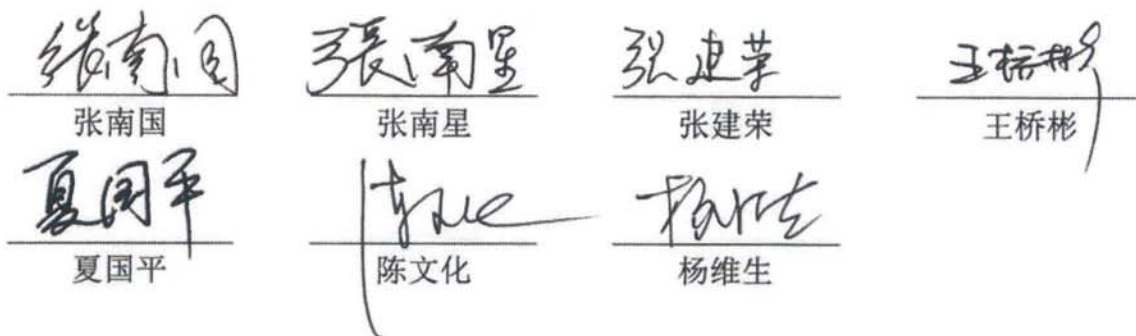 张南国 張南星 张建荣 王桥彬
张南国 张南星 张建荣 王桥彬
夏国平 陈文化 杨维生
夏国平 陈文化 杨维生